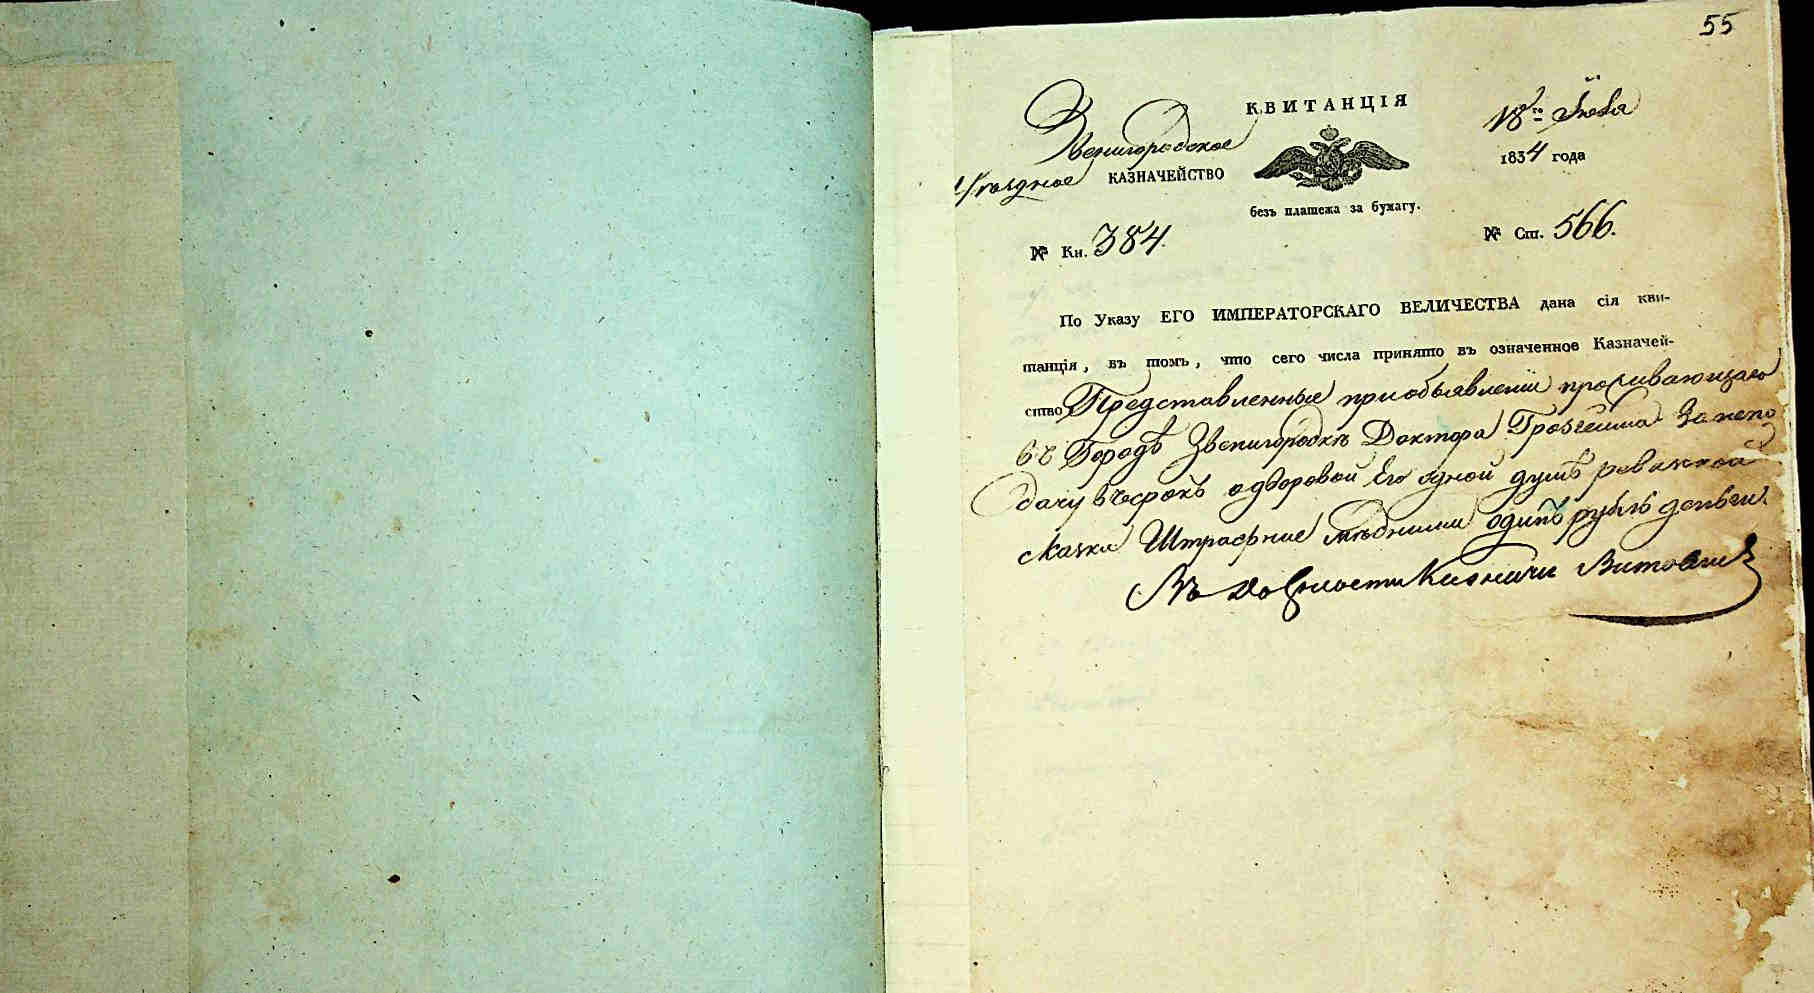 55
КВИТАНЦІЯ
Звенигородское
Уѣздное КАЗНАЧЕЙСТВО
18го
1834 года
безъ платежа за бумагу.
№ Кн. 384.
№ Ст. 566.
По Указу ЕГО ИМПЕРАТОРСКАГО ВЕЛИЧЕСТВА дана сія кви-
танція, въ томъ, что сего числа принято въ означенное Казначей-
ство Представленные приобъявленіи проживающаго
въ Городѣ Звенигородкѣ Доктора за непо
дачу въсрокъ одворовой Его одной душѣ ревизкой
сказки Штрафные мѣдними одинъ рубль деньги.
Въ Должности Казначея